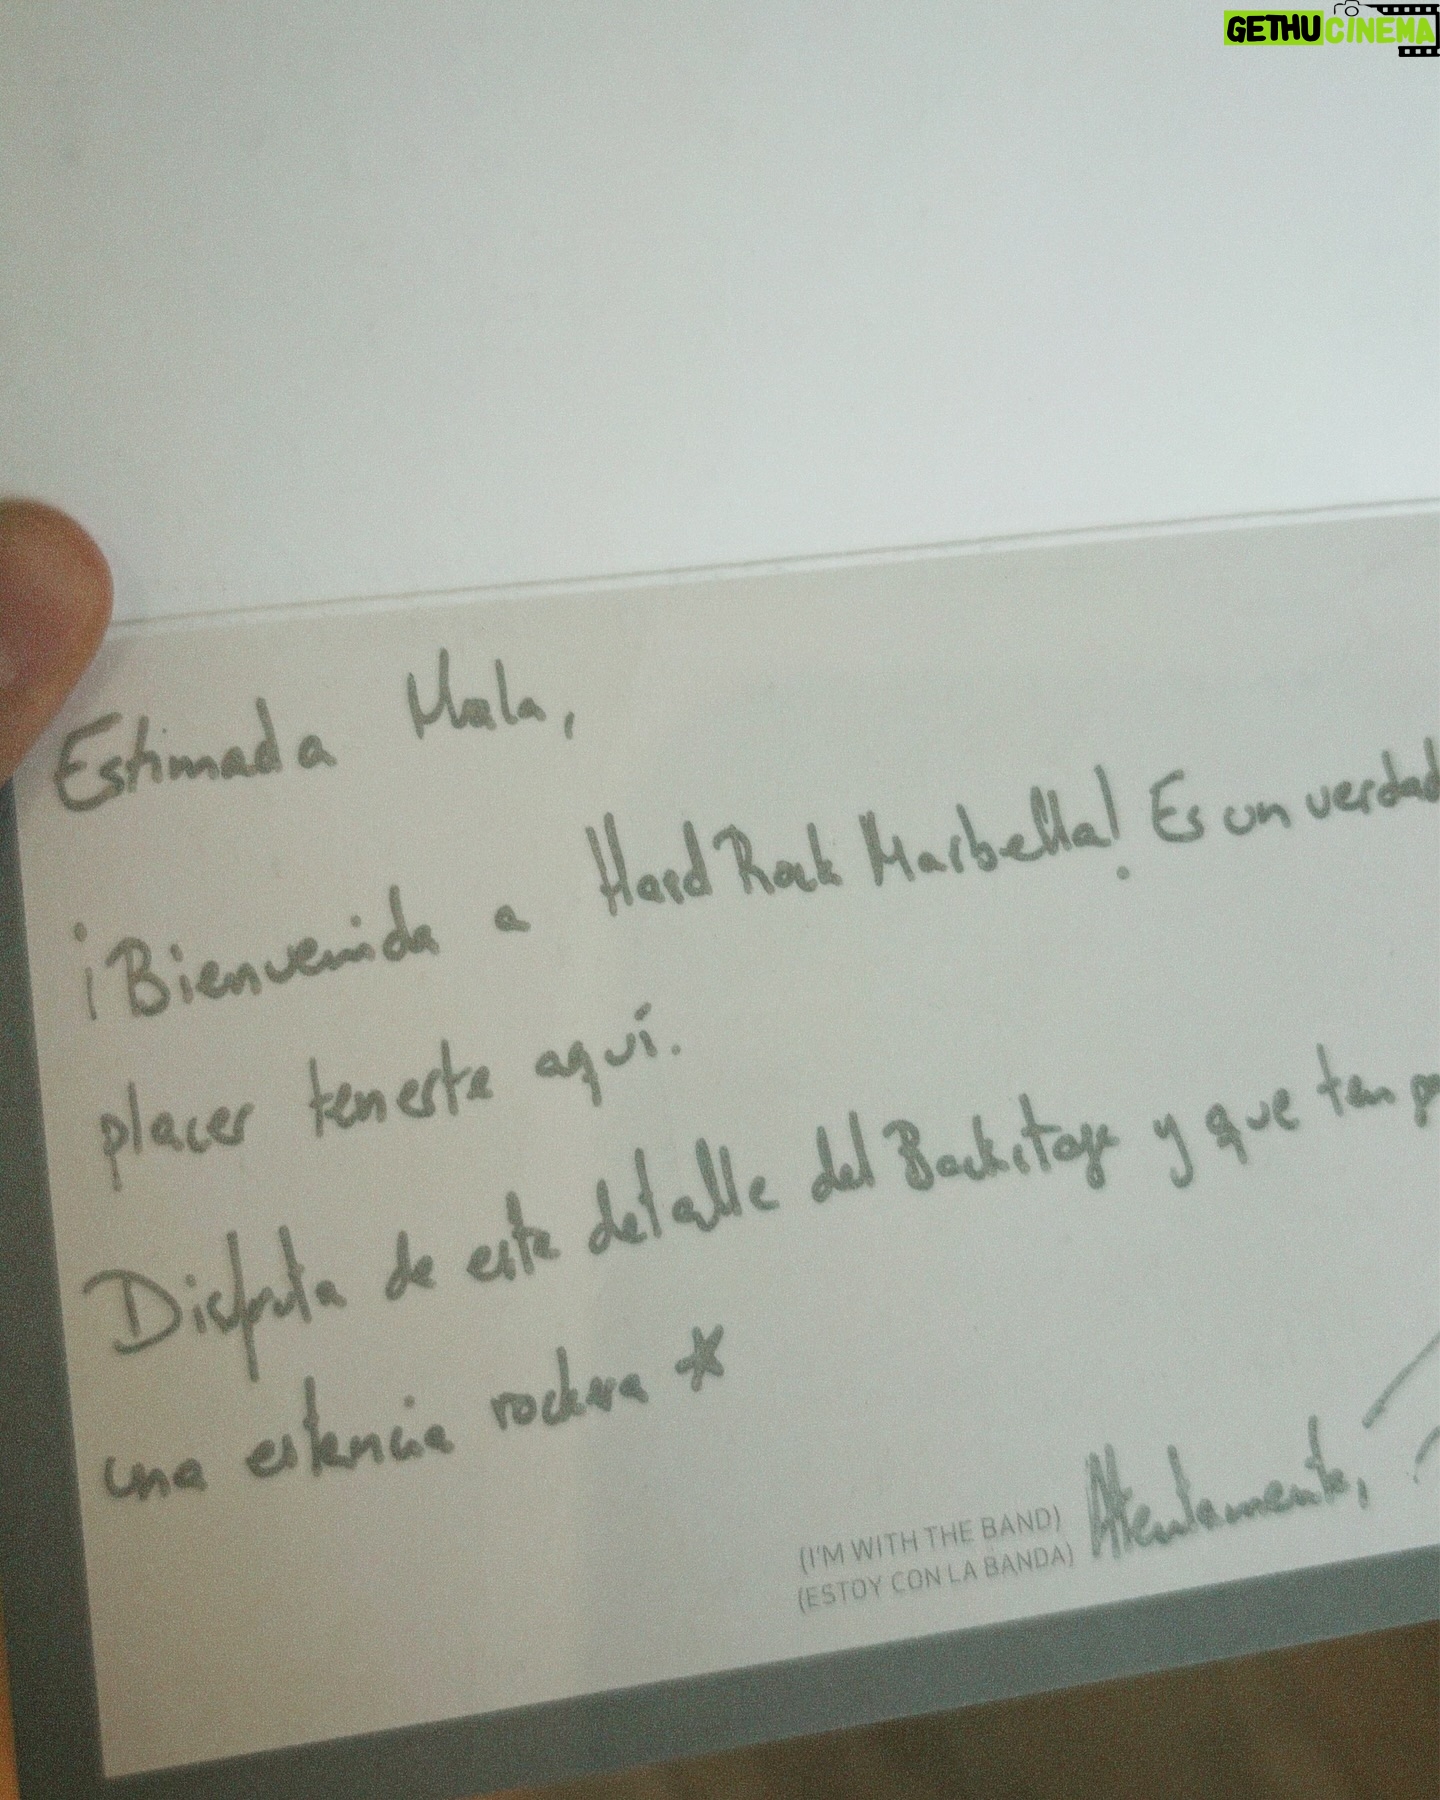 GETHUCINEMA
Estimada Mala,
¡Bienvenida a Hard Rock Marbella! Es un verdad
placer tenerte aquí.
Disfruta de este detalle del Backstage y que ten
una estancia rockera *
(I'M WITH THE BAND)
(ESTOY CON LA BANDA)
Atentamente,